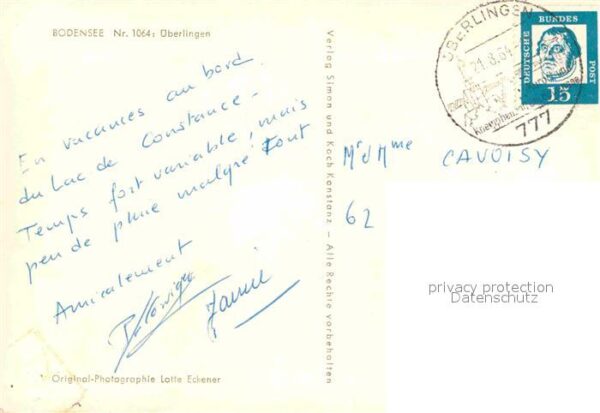 BODENSEE Nr. 1064: Überlingen
En vacances au bord
du Lac de Constance -
Temps fort variable, mais
peu de pluie malgré tout
Amicalement
Original-Photographie Lotte Eckener
Verlag Simon und Koch Konstanz - Alle Rechte vorbehalten
ÜBERLINGEN
21.8.64
777
DEUTSCHE
BUNDES
POST
15
Mr & Mme CAVOISY
62
privacy protection
Datenschutz